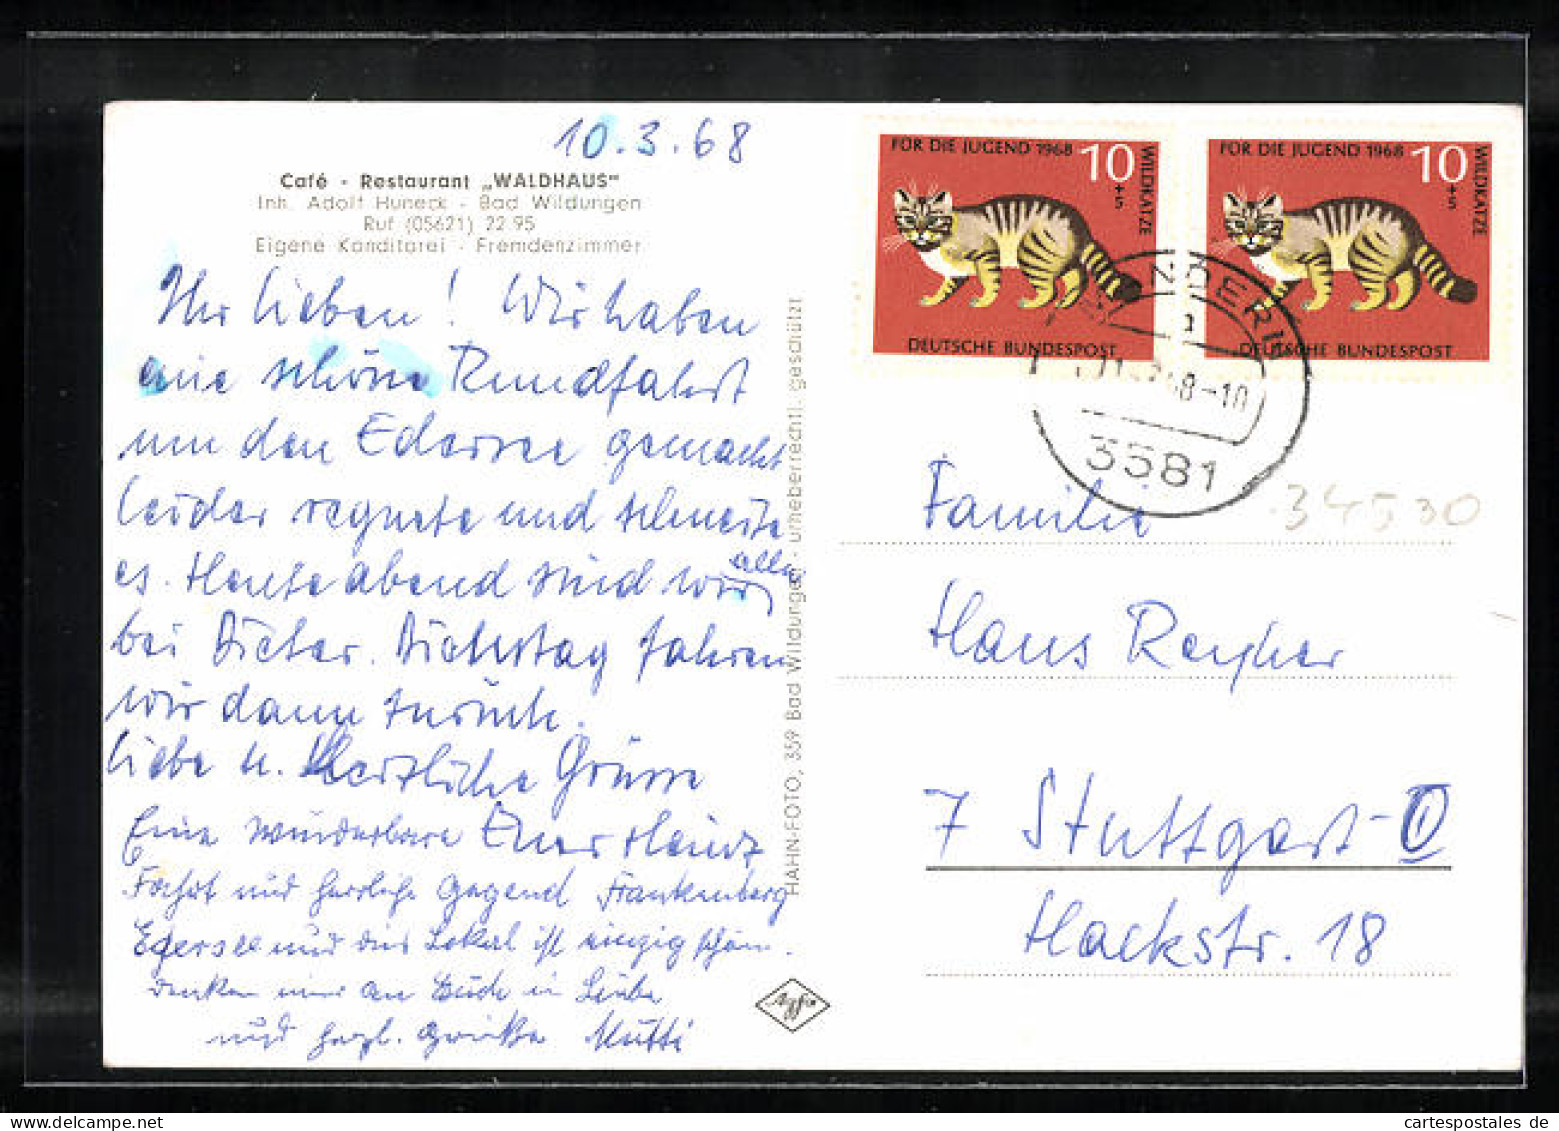 10.3.68
Café - Restaurant „WALDHAUS"
Inh. Adolf Huneck - Bad Wildungen
Ruf (05621) 22 95
Eigene Konditorei - Fremdenzimmer
Ihr lieben! Wir haben
eine schöne Rundfahrt
um den Edersee gemacht
leider regnete und schneite
es. Heute abend sind wir alle
bei Dieter. Dienstag fahren
wir dann zurück.
liebe u. Herzliche Grüsse
Euer Heinz
Eine wunderbare
Fahrt und herrliche Gegend Frankenberg
Edersee und das Lokal ist einzig schön.
denken an Euch in Liebe
und herzl. Grüße Mutti
HAHN-FOTO, 359 Bad Wildungen - urheberrechtl. geschützt
Agfa
FÜR DIE JUGEND 1968
10
+5
WILDKATZE
DEUTSCHE BUNDESPOST
FÜR DIE JUGEND 1968
10
+5
WILDKATZE
DEUTSCHE BUNDESPOST
a
68-10
3581
Familie
345 30
Hans Reyher
7 Stuttgart-O
Hackstr. 18
cartespostales de